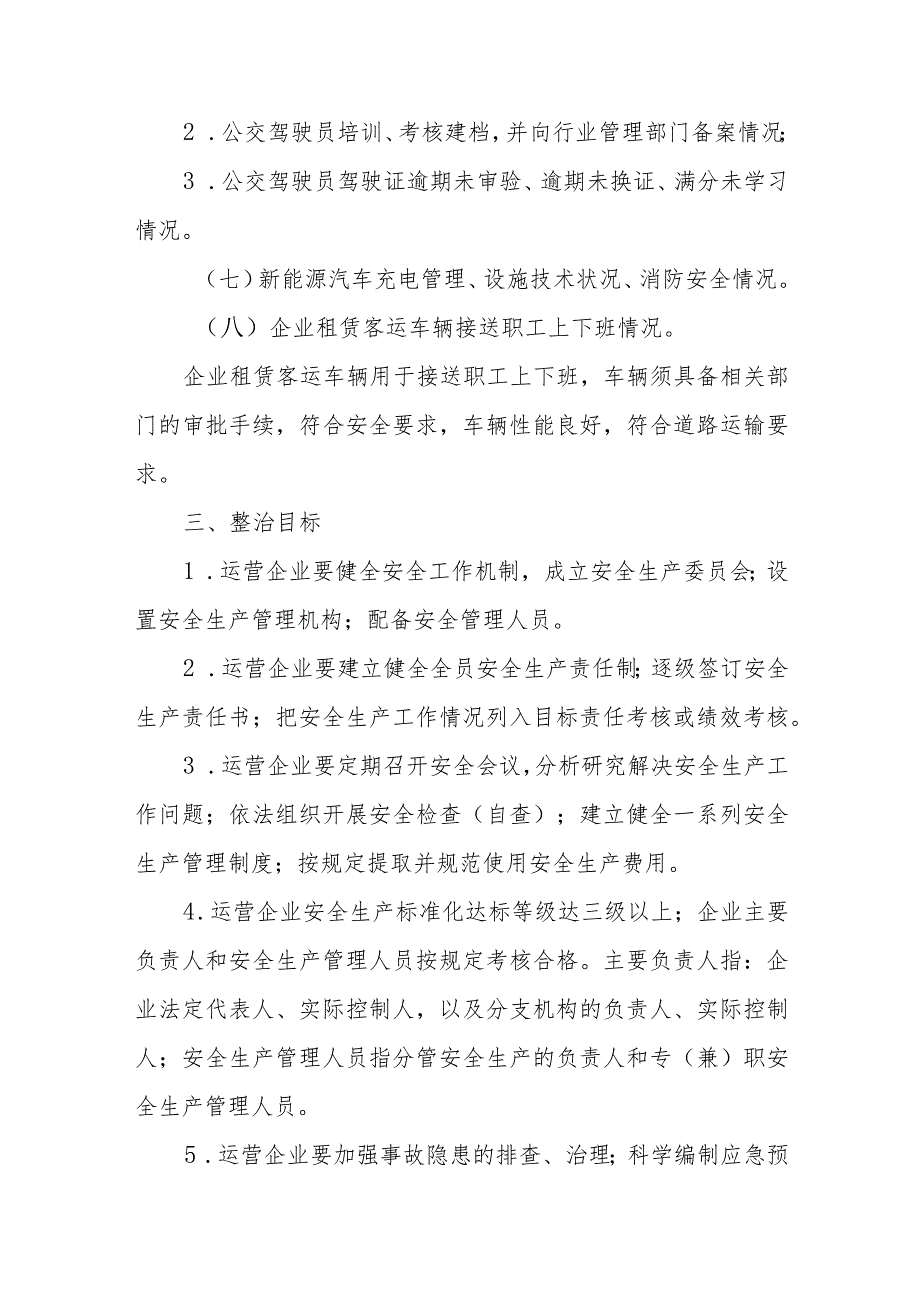 2 .公交驾驶员培训、考核建档,并向行业管理部门备案情况;
3 .公交驾驶员驾驶证逾期未审验、逾期未换证、满分未学习
情况。
（七）新能源汽车充电管理、设施技术状况、消防安全情况。
（八）企业租赁客运车辆接送职工上下班情况。
企业租赁客运车辆用于接送职工上下班，车辆须具备相关部
门的审批手续，符合安全要求，车辆性能良好，符合道路运输要
求。
三、整治目标
1 .运营企业要健全安全工作机制，成立安全生产委员会;设
置安全生产管理机构；配备安全管理人员。
2 .运营企业要建立健全全员安全生产责任制;逐级签订安全
生产责任书；把安全生产工作情况列入目标责任考核或绩效考核。
3 .运营企业要定期召开安全会议,分析研究解决安全生产工
作问题；依法组织开展安全检查（自查）；建立健全一系列安全
生产管理制度；按规定提取并规范使用安全生产费用。
4.运营企业安全生产标准化达标等级达三级以上；企业主要
负责人和安全生产管理人员按规定考核合格。主要负责人指：企
业法定代表人、实际控制人，以及分支机构的负责人、实际控制
人；安全生产管理人员指分管安全生产的负责人和专（兼）职安
全生产管理人员。
5 .运营企业要加强事故隐患的排查、治理;科学编制应急预